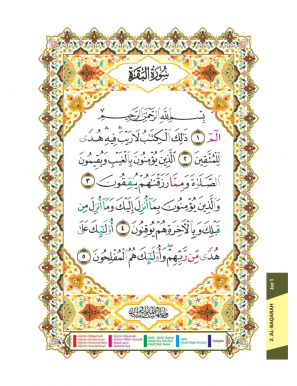 سُورَةُ الْبَقَرَةِ
بِسْمِ اللَّهِ الرَّحْمَٰنِ الرَّحِيمِ
الٓمٓ ١ ذَٰلِكَ الْكِتَٰبُ لَا رَيْبَ فِيهِ هُدًى
لِّلْمُتَّقِينَ ٢ الَّذِينَ يُؤْمِنُونَ بِالْغَيْبِ وَيُقِيمُونَ
الصَّلَاةَ وَمِمَّا رَزَقْنَٰهُمْ يُنفِقُونَ ٣
وَالَّذِينَ يُؤْمِنُونَ بِمَا أُنزِلَ إِلَيْكَ وَمَا أُنزِلَ مِن
قَبْلِكَ وَبِالْآخِرَةِ هُمْ يُوقِنُونَ ٤ أُولَٰئِكَ عَلَىٰ
هُدًى مِّن رَّبِّهِمْ ۖ وَأُولَٰئِكَ هُمُ الْمُفْلِحُونَ ٥
Juz 1
2. AL-BAQARAH